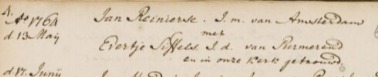 Ao 1764 Jan Reinierse. J.m. van Amsterdam
d. 13 Maij met
Evertje Siffels J.d. van Purmerend
en in onze Kerk getrouwd.
d. 17. Junij